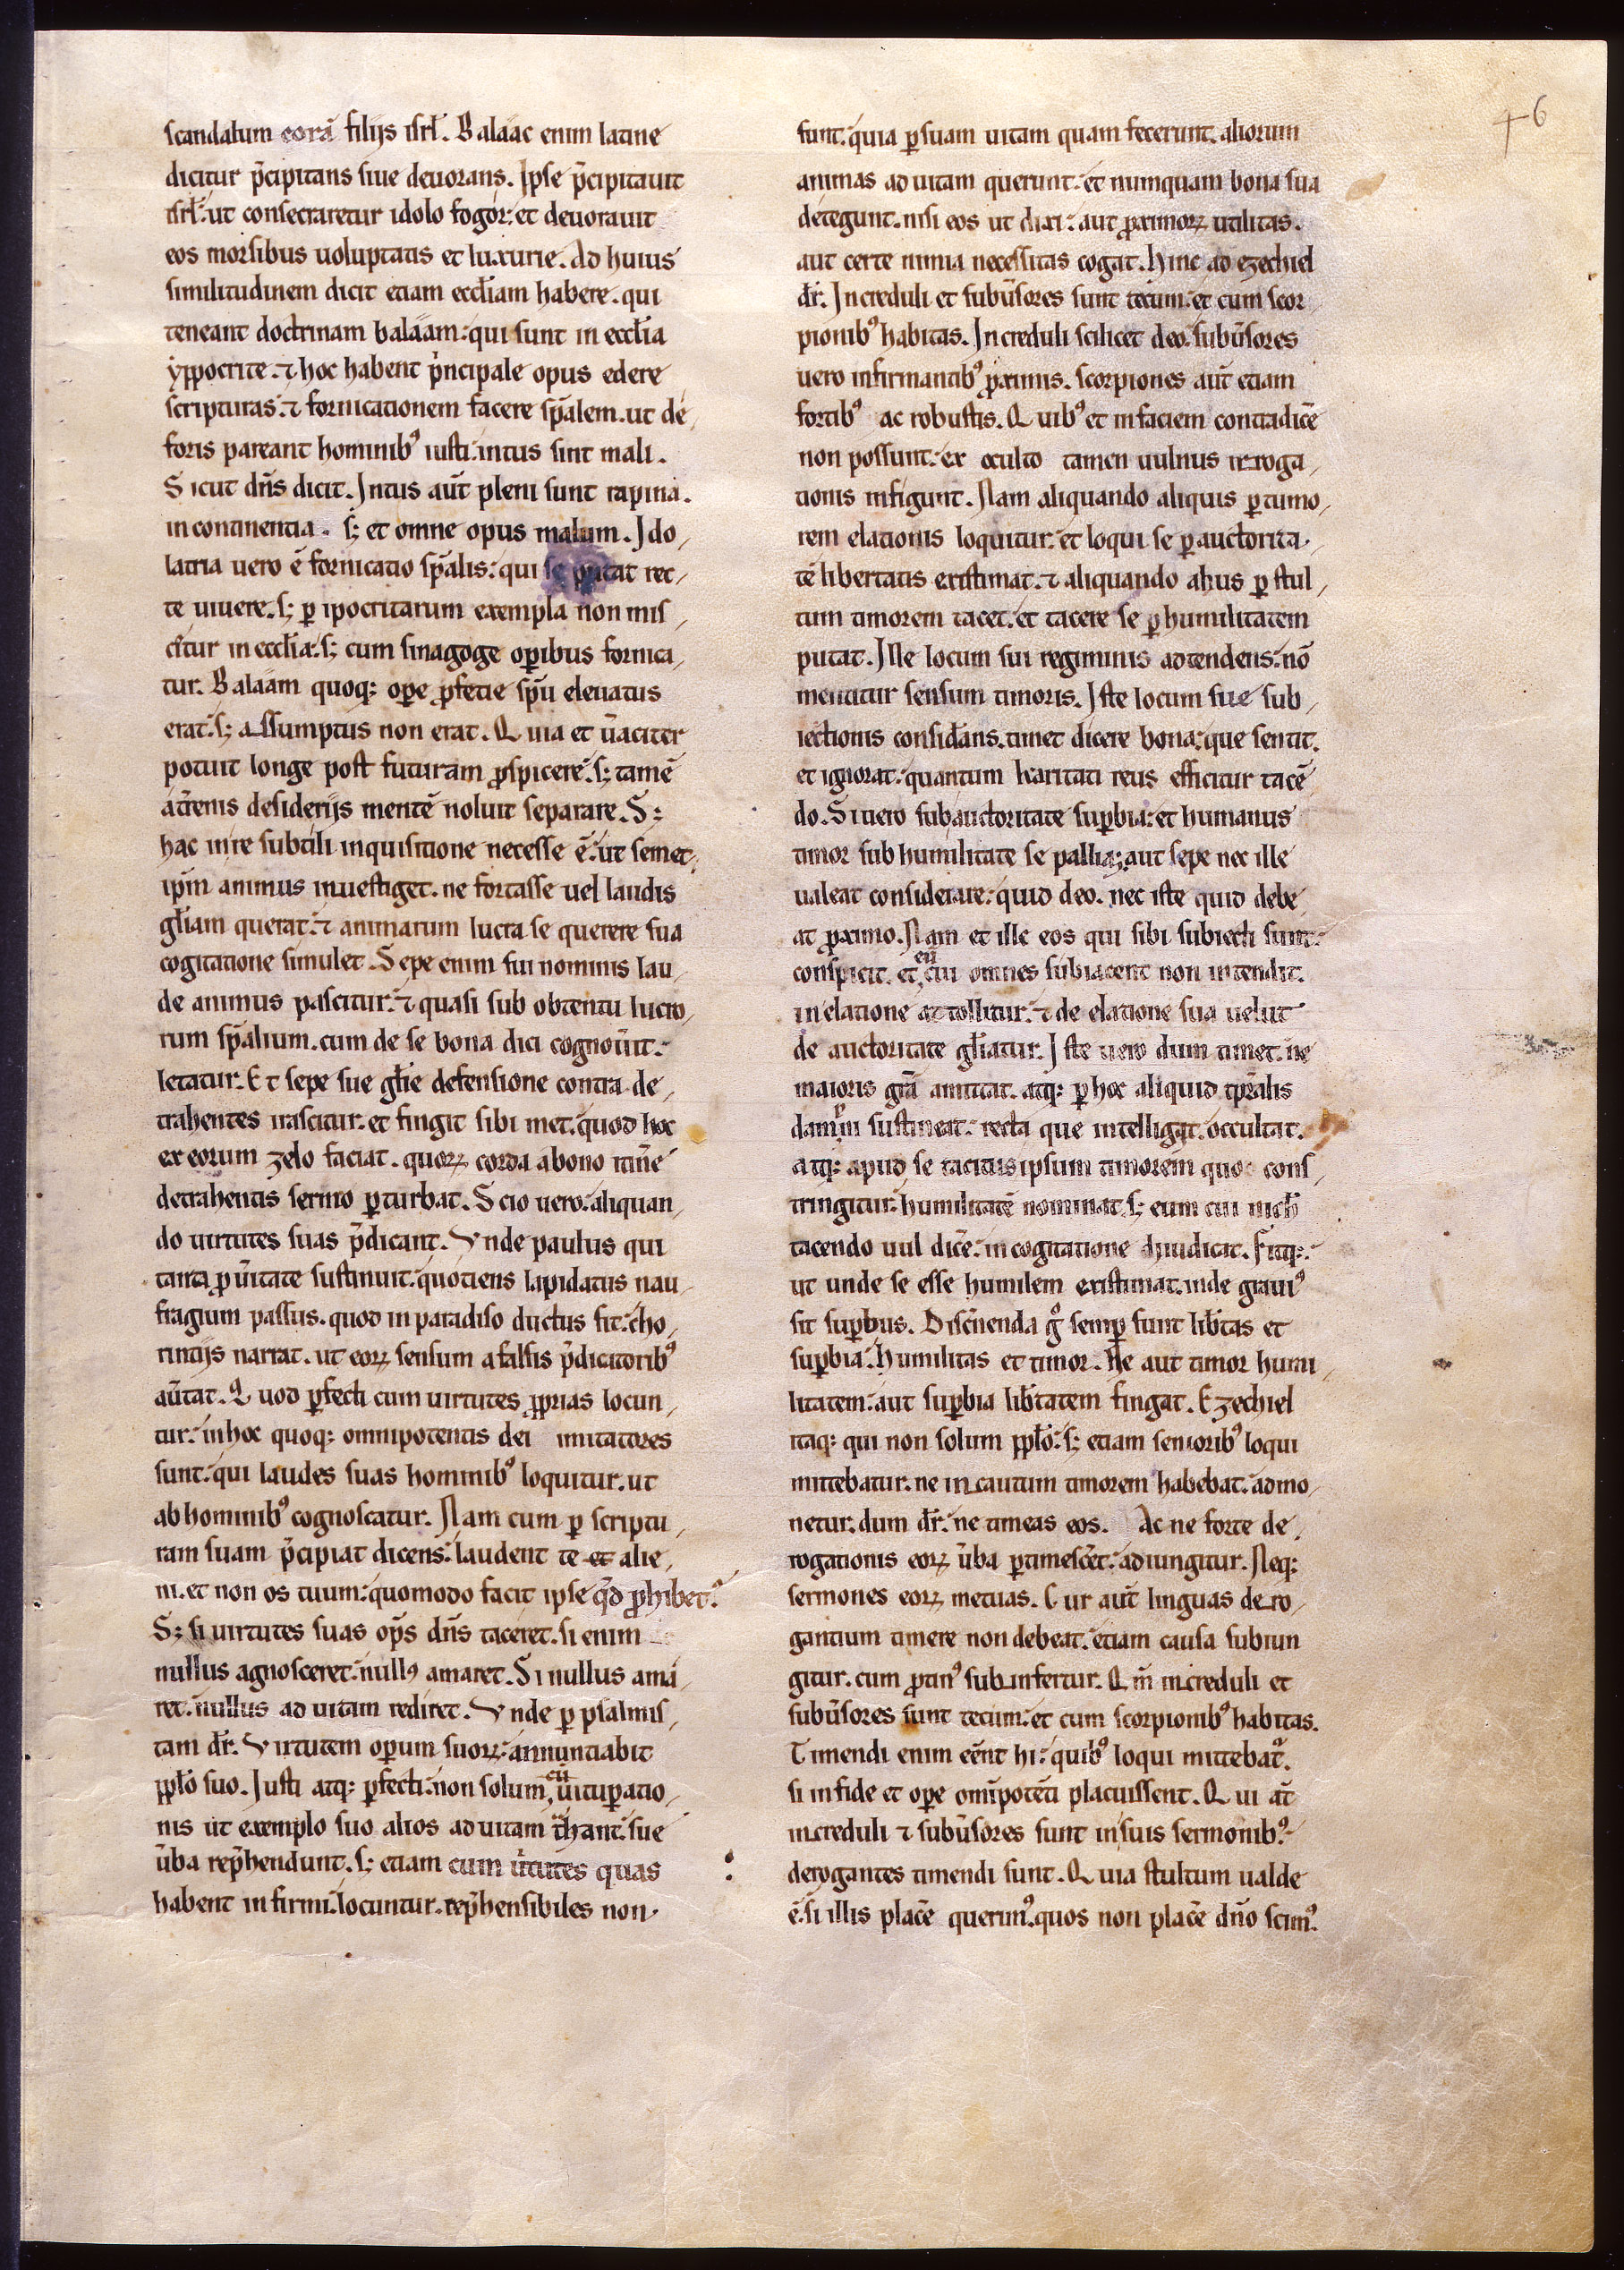 46
scandalum corā filijs isrł. Balaac enim latine
dicitur p̄cipitans siue deuorans. Ipse p̄cipitauit
isrł. ut consecraretur idolo fogor. et deuorauit
eos morsibus uoluptatis et luxurie. Ad huius
similitudinem dicit etiam eccl̄iam habere. qui
teneant doctrinam balaam. qui sunt in eccl̄ia
ẏppocrite. ⁊ hoc habent p̍ncipale opus edere
scripturas. ⁊ fornicationem facere sp̄alem. ut de
foris pareant hominibꝰ iusti. intus sint mali.
Sicut dn̄s dicit. Intus aut̄ pleni sunt rapina.
incontinentia. sꝫ et omne opus malum. Ido,
latria uero ē fornicatio sp̄alis. qui se putat rec,
te uiuere. sꝫ ꝑ ipocritarum exempla non mis,
cetur in eccl̄ia. sꝫ cum sinagoge oꝑibus fornica,
tur. Balaam quoqꝫ oꝑe ꝓfetie sp̄u eleuatus
erat. sꝫ assumptus non erat. Quia et ūaciter
potuit longe post futuram ꝓspicere. sꝫ tamē
a tr̄enis desiderijs mentē noluit separare. Sꝫ
hac in re subtili inquisitione necesse ē. ut semet,
ip̄m animus inuestiget. ne fortasse uel laudis
gl̄iam querat. ⁊ animarum lucra se querere sua
cogitatione simulet. Sepe enim sui nominis lau,
de animus pascitur. ⁊ quasi sub obtentu lucro,
rum sp̄alium. cum de se bona dici cognoūit.
letatur. Et sepe sue gl̄ie defensione contra de,
trahentes irascitur. et fingit sibi met. quod hoc
ex eorum zelo faciat. quoꝝ corda a bono itin̄e
detrahentis sermo ꝑturbat. Scio uero. aliquan,
do uirtutes suas p̄dicant. Vnde paulus qui
tanta ꝓ ūitate sustinuit. quotiens lapidatus nau,
fragium passus. quod in paradiso ductus sit. cho,
rintijs narrat. ut eoꝝ sensum a falsis p̄dicatoribꝰ
aūtat. Quod ꝑfecti cum uirtutes ꝓprias locun,
tur. in hoc quoqꝫ omnipotentis dei imitatores
sunt. qui laudes suas hominibꝰ loquitur. ut
ab hominibꝰ cognoscatur. Nam cum ꝑ scriptu,
ram suam p̄cipiat dicens. laudent te et alie,
ni. et non os tuum. quomodo facit ipse qd̄ ꝓhibet.
Sꝫ si uirtutes suas op̄s dn̄s taceret. si enim
nullus agnosceret. nullꝰ amaret. Si nullus ama
ret. nullus ad uitam rediret. Vnde ꝑ psalmis,
tam dr̄. Virtutem oꝑum suoꝝ. annuntiabit
ppl̄o suo. Iusti atqꝫ ꝑfecti. non solum cū uituꝑatio,
nis ut exemplo suo alios ad uitam tͣhant. sue
ūba rep̄hendunt. sꝫ etiam cum ūtutes quas
habent infirmi. locuntur. rep̄hensibiles non.
sunt. quia ꝑ suam uitam quam fecerunt. aliorum
animas ad uitam querunt. et numquam bona sua
detegunt. nisi eos ut dixi. aut ꝓximoꝝ utilitas.
aut certe nimia necessitas cogat. Hinc ad ezechiel
dr̄. Increduli et subūsores sunt tecum. et cum scor
pionibꝰ habitas. Increduli scilicet deo. subūsores
uero infirmantibꝰ ꝓximis. scorpiones aut̄ etiam
fortibꝰ ac robustis. Quibꝰ et in faciem contradicē
non possunt. ex oculto tamen uulnus irroga,
tionis infigunt. Nam aliquando aliquis ꝑ tumo,
rem elationis loquitur. et loqui se ꝑ auctorita,
tē libertatis existimat. ⁊ aliquando alius ꝑ stul,
tum timorem tacet. et tacere se ꝑ humilitatem
putat. Ille locum sui regiminis adtendens. nō
mentitur sensum timoris. Iste locum sue sub,
iectionis considans. timet dicere bona. que sentit.
et ignorat. quantum karitati reus efficitur tacē
do. Si uero sub auctoritate suꝑbia. et humanus
timor sub humilitate se palliaꝫ. aut sepe nec ille
ualeat considerare. quid deo. nec iste quid debe,
at ꝓximo. Nam et ille eos qui sibi subiecti sunt.
conspicit. et eū cui omnes subiacent non intendit.
in elatione attollitur. ⁊ de elatione sua uelut
de auctoritate gl̄iatur. Iste uero dum timet. ne
maioris grā amittat. atqꝫ ꝑ hoc aliquid tp̄ralis
dampni sustineat. recta que intelligat. occultat.
atqꝫ apud se tacitus ipsum timorem quo cons,
tringitur. humilitatē nominat. sꝫ eum cui nich̄
tacendo uul dicē. in cogitatione diiudicat. Fitqꝫ.
ut unde se esse humilem existimat. inde grauiꝰ
sit suꝑbus. Discn̄enda gͦ semꝑ sunt lib̄tas et
suꝑbia. humilitas et timor. Ne aut timor humi,
litatem. aut suꝑbia lib̄tatem fingat. Ezechiel
itaqꝫ qui non solum ppl̄o. sꝫ etiam senioribꝰ loqui
mittebatur. ne incautum timorem habebat. admo,
netur. dum dr̄. ne timeas eos. Ac ne forte de,
rogationis eoꝝ ūba ꝑtimescēt. adiungitur. Neqꝫ
sermones eoꝝ metuas. Cur aut̄ linguas dero,
gantium timere non debeat. etiam causa subiun
gitur. cum ꝓtinꝰ subinfertur. Qm̄ increduli et
subūsores sunt tecum. et cum scorpionibꝰ habitas.
Timendi enim eēnt hi. quibꝰ loqui mittebat᷑.
si in fide et oꝑe om̄ipotēti placuissent. Qui at̄
increduli ⁊ subūsores sunt in suis sermonibꝰ.
derogantes timendi sunt. Quia stultum ualde
ē. si illis placē querimꝰ. quos non placē dn̄o scimꝰ.